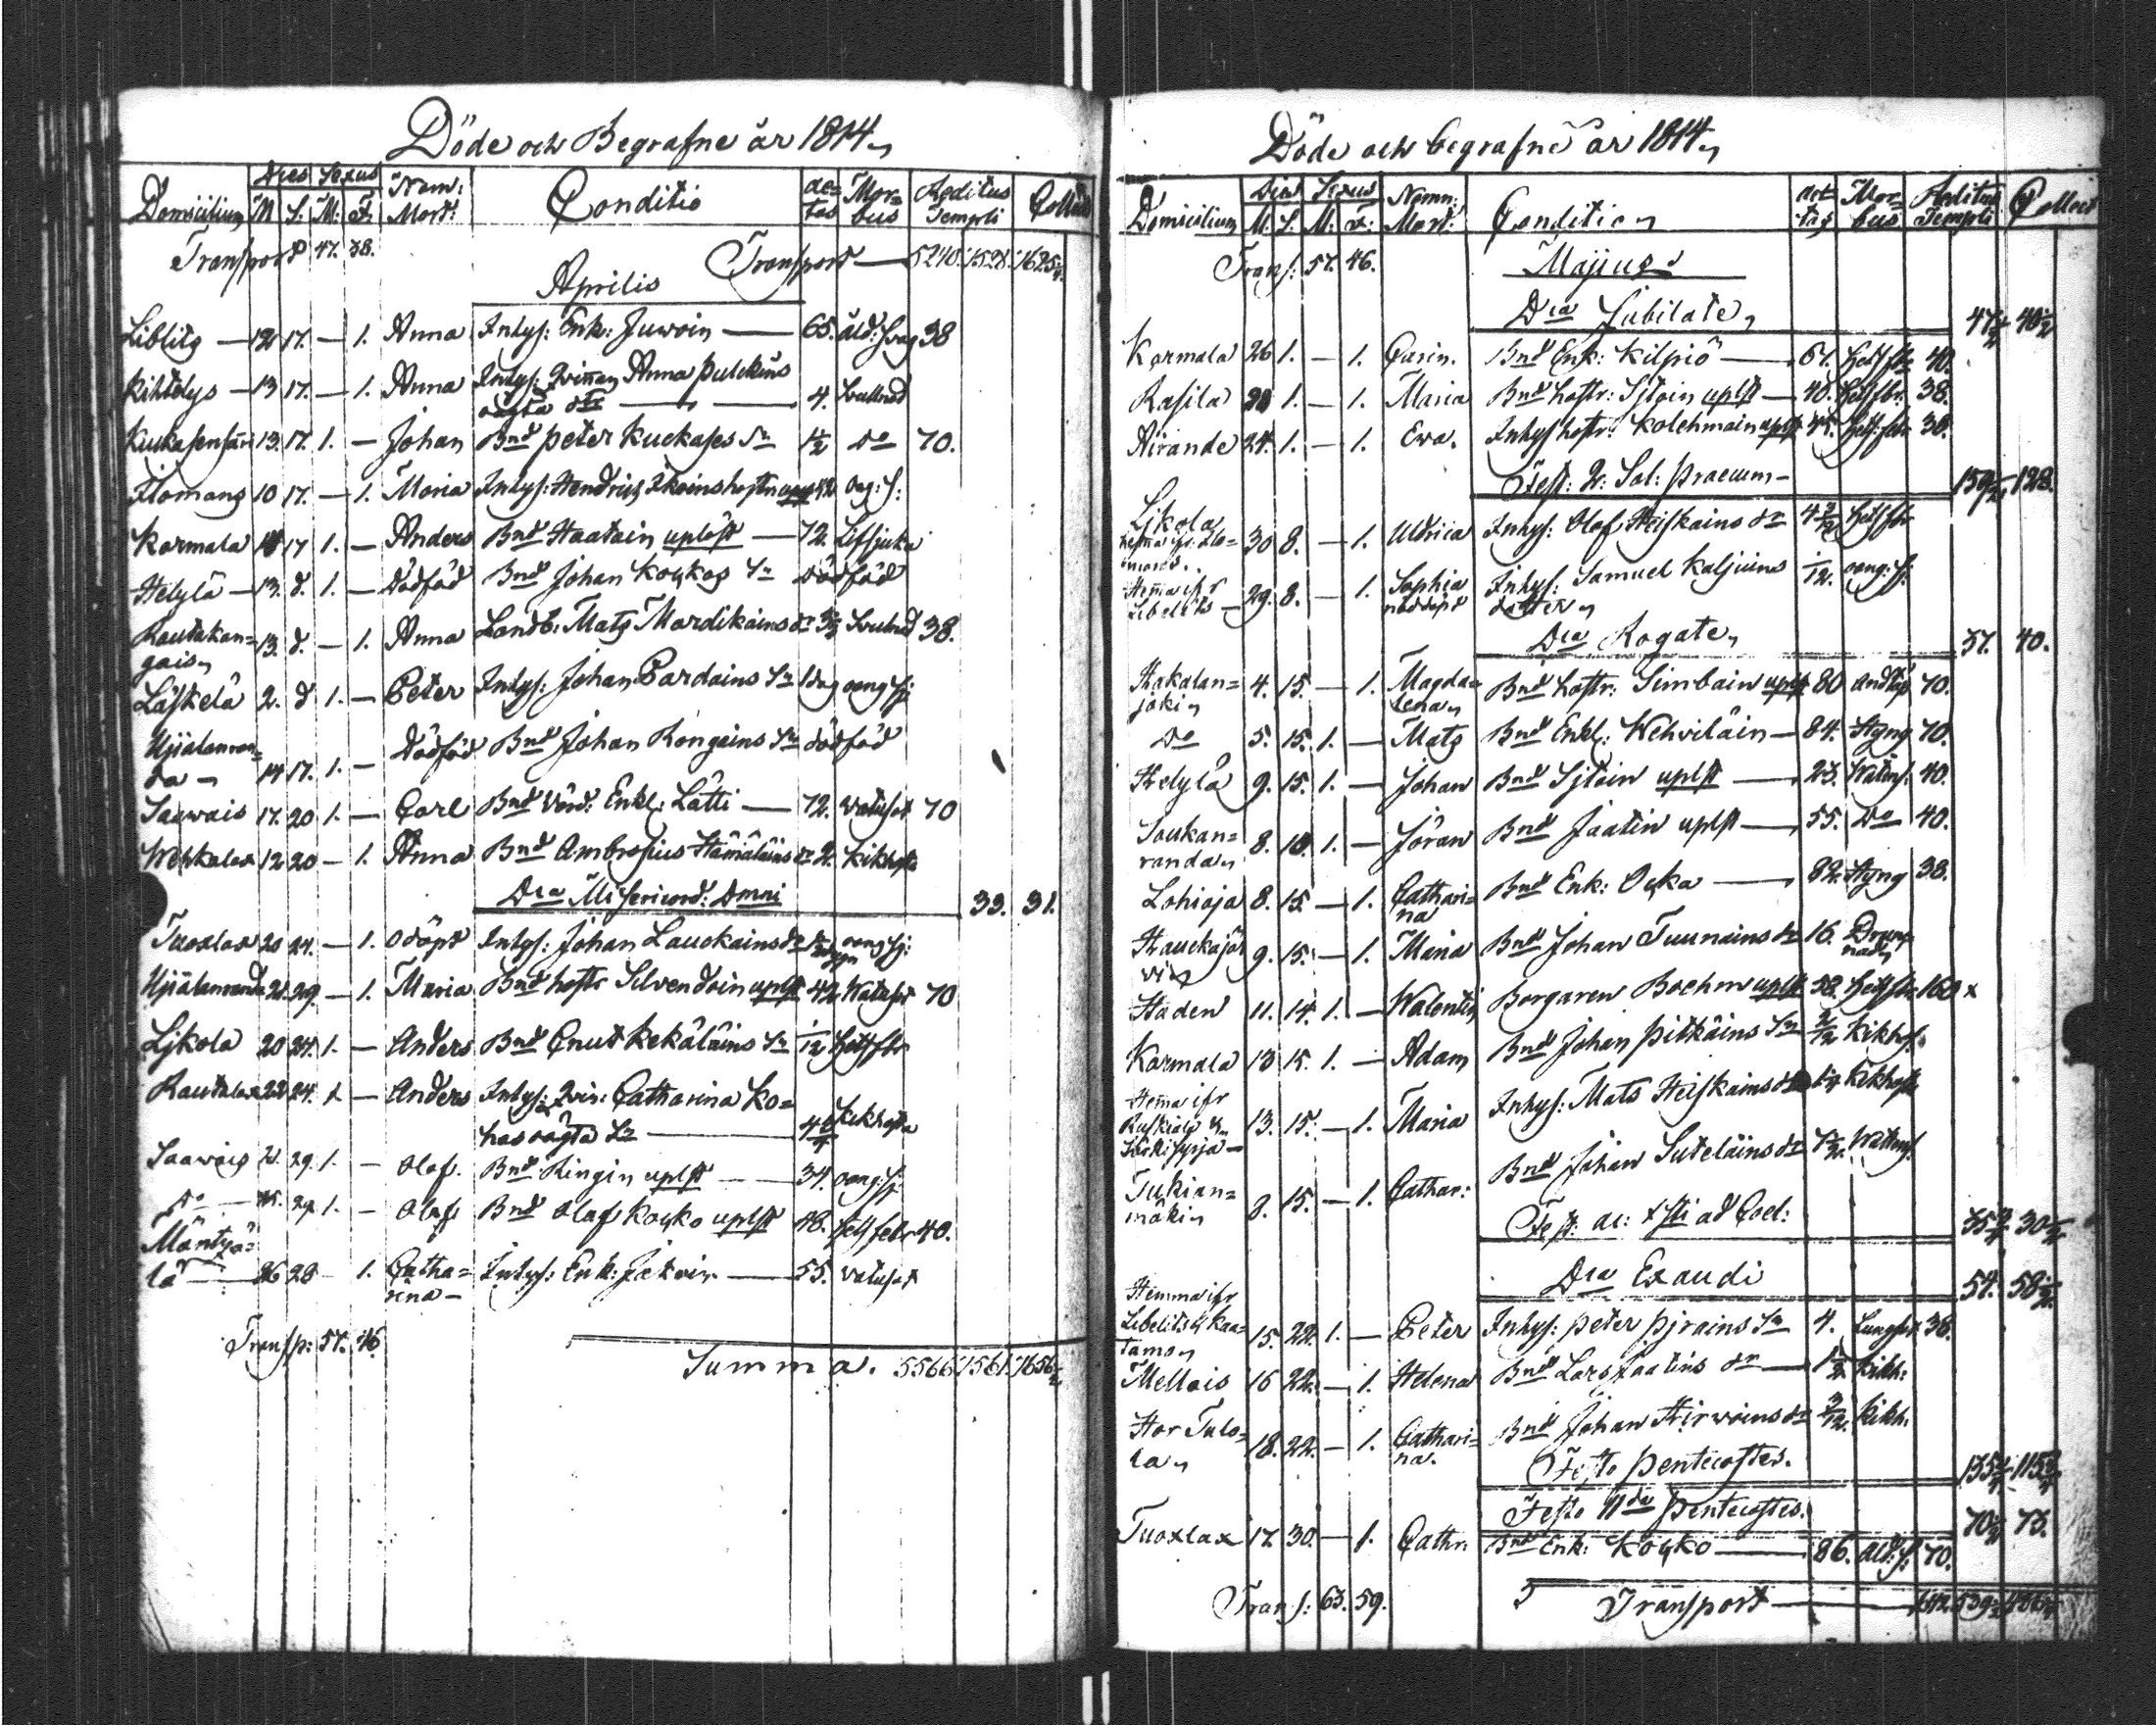 Döde och Begrafne år 1814,
Domicilium Dies Sexus Nom: Mort: Conditio ae= tas Mor= bus Aeditus Templi Collect
M S: M: F:
Transport 47. 38. Transport — 5240. 1528. 1625
Aprilis
Liblitz — 12 17. — 1. Anna Inhys: Enk: Juwoin — 65. åld: swag 38
Kihtelys — 13 17. — 1. Anna Inhys: Qwinnan Anna Pulckins
oägta dtr — 4. Svullnad
Kuckasenjäri 13. 17. 1. — Johan Bnd Peter Kuckases Sn 1/2 Do 70.
Ilomans 10 17. — 1. Maria Inhys: Hendrich hustru uplst 42 oag: s:
Kormala 17 1. — Anders Bnd Haatain uplöst — 72. Lefsjuka
Helylä — 13. d. 1. — Dödföd Bnd Johan Kockos Sn Dödföd
Rautakan= gais 13. d. — 1. Anna Landb: Mats Mardikains dr Svulnad 38.
Läskelä 2. d 1. — Peter Inhys: Johan Pardains Sn 1 dag oang sj:
Hjiälanran= da — 14 17. 1. — Dödföd Bnd Johan Rongains Sn dödföd
Saawais 17. 20 1. — Carl Bnd Enkl: Lätti — 72. watusot 70
Wehkalax 12 20 — 1. Anna Bnd Ambrosius Hämäläins dr 2. Kikhosta
Dca Misericord: Dmni 33. 31.
Tuoxlax 20 24. — 1. odöpt Inhys: Johan Lauckains dr oang sj:
Hjiälanranda 21. 29. — 1. Maria Bnd hustr Silvendoin uplst 42 Watusot 70
Ljkola 20 24. 1. — Anders Bnd Cnut Kekäläins Sn 1/12 hetsfbr
Rautalax 23 24. 1 — Anders Inhys: Qvin: Catharina Ko=
hos oägta Sn — Kikhosta
Saawais 21. 29. 1. — Olof. Bnd Ringin uplst — 34. oang: sj:
Do — 29. 1. — Olof Bnd Olof Kocko uplst 48. hetsfebr 40.
Mäntyä=
lä — 26 28 — 1. Catha= rina — Inhys: Enk: — 55. watusot
Transp: 57. 46.
Summa. 5566. 1561. 1656
Döde och begrafne år 1814,
Domicilium Dies Sexus Nomn: Mort: Conditio, aet tas Mor= bus Aeditus Templi Collect
M: S. M: F:
Transp: 57. 46. Majius
Dca Jubilate, 47 40
Kormala 26 1. — 1. Carin. Bnd Enk: Kilpiö — 67. hetsfbr 40.
Rasila 1. — 1. Maria Bnd hustr: uplst — 40. hetsfbr. 38.
Airande 24. 1. — 1. Eva. Inhys hustr: Kolehmain uplst hets: febr 38.
Fest: 2: Sol: Praecum — 159 128.
Ljkola
hemma ifr: Ilo=
mans. 30 8. — 1. Uldrica Inhys: Olof Heiskains dr 4 3/12 hetsfbr
Hemma ifr Libelits — 29. 8. — 1. Sophia nöddöpt Inhys: Samuel Kaljuins
dotter, 1/12. oang: sj:
Dca Rogate, 37. 40.
Hakalan= joki, 4. 15. — 1. Magda= lena, Bnd hustr: Simbain uplst 80 andtäp 70.
Do 5. 15. 1. — Mats Bnd Enkl: Wehviläin — 84. Styng 70.
Helylä 9. 15. 1. — Johan Bnd uplst — 23. Watns: 40.
Soukan= randa, 8. 1. — Jöran Bnd Jaatin uplst — 55. Do 40.
Lohioja 8. 15 — 1. Cathari= na Bnd Enk: Ocka — 82. Styng 38.
Hauckajär vi 9. 15. — 1. Maria Bnd Johan Tuunains dr 16. Drunk nad,
Staden 11. 14. 1. — Walentin Borgaren Boehm uplst 58. hetsfbr 160 x
Kormala 13 15. 1. — Adam Bnd Johan Pitkäins Sn 2/12 Kikhos:
Hemma ifr
Ruskiala 13. 15. — 1. Maria Inhys: Mats Heiskains dr Kikhosta
Tukian= mäki, 8. 15. — 1. Cathar: Bnd Johan Suteläins dr Wattns:
Fest: ac: xsti ad Coel: 35 30
Dca Exaudi 54. 58
Hemma ifr
Libelits 4 Kaa=
tamo, 15. 22. 1. — Peter Inhys: Peter Pjrains Sn 4. Lungsot 38.
Mellois 16 22. — 1. Helena Bnd Lars Jaatins dr — Kikh:
Stor Tulo=
la, 18. 22. — 1. Cathari= na. Bnd Johan Hirwoins dr 3/12. Kikh.
Festo Pentecostes. 135 115
Festo IIda Pentecostes. 70 73.
Tuoxlax 17. 30. — 1. Cathr. Bnd Enk: Kocko — 86. åld: s: 70.
Transp: 63. 59. Transport —